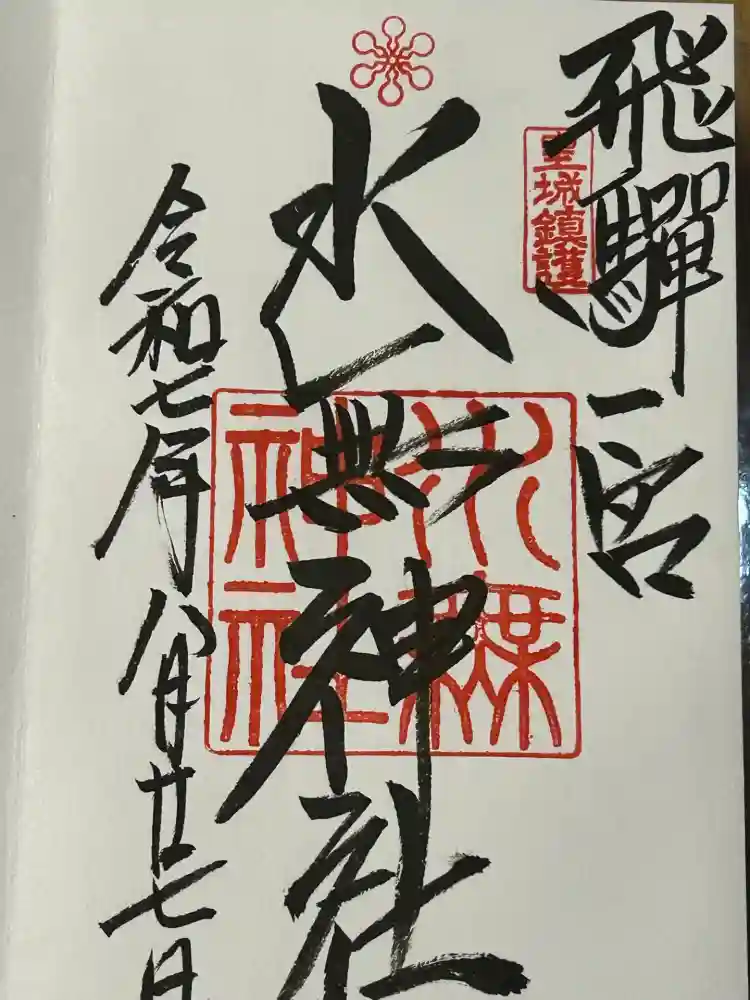 飛驒一宮
皇城鎮護
水無神社
水無神社
令和七年八月廿七日